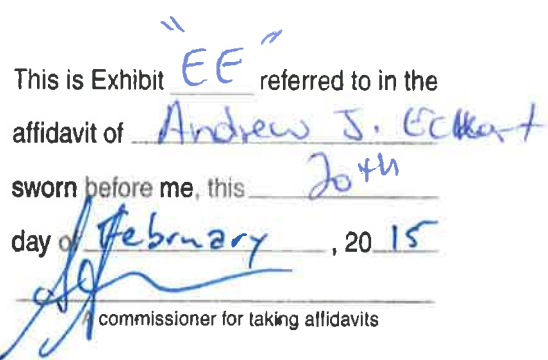 This is Exhibit "EE" referred to in the
affidavit of Andrew J. Eckart
sworn before me, this 20th
day of February, 2015
A commissioner for taking affidavits